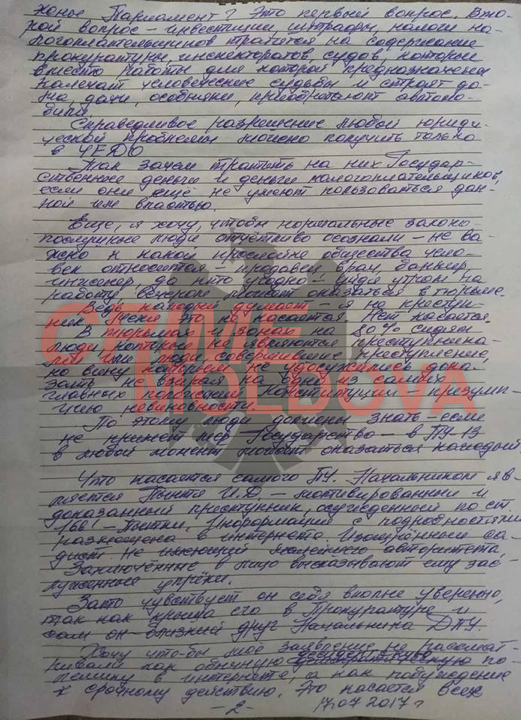 хонье Парламент? Это первый вопрос. Вто-
рой вопрос - инвестиции, штрафы, налоги на-
логоплательщиков тратятся на содержание
прокуратуры, инспекторатов, судов, которые
вместо работы для которой предназначены
калечат человеческие судьбы и строят до-
ма, дачи, особняки, приобретают автомо-
били.
Справедливое разрешение любой юриди-
ческой проблемы можно получить только
в ЧЕДО
Так зачем тратить на них Государ-
ственные деньги и деньги налогоплательщиков,
если они ещё не умеют пользоваться дан-
ной им властью.
Ещё, я хочу, чтобы нормальные законо
послушные люди отчётливо осознали - не ва-
жно к какой прослойке общества чело-
век относится - продавец, врач, банкир
инженер да кто угодно - уйдя утром на
работу, вечером может оказаться в тюрьме.
Ведь каждый думает - я не преступ-
ник. Меня это не касается. Нет касается.
В тюрьмах и зонах на 80% сидят
люди которые не являются преступника-
ми или люди совершившие преступление,
но вину которым не удосужились дока-
зать не взирая на одно из самых
главных положений Конституции презумп-
цию невиновности.
По этому люди должны знать - если
не примет мер Государство - в ПУ-13
в любой момент может оказаться каждый.
Что касается самого ПУ. Начальником яв-
ляется Пынтя И.Д. - мотивированный и
доказанный преступник, осужденный по ст.
166¹ - Пытки. Информация с подробностями
размещена в интернете. Изощрённый са-
дист не имеющий малейшего авторитета.
Заключённые в лицо высказывают ему зас-
луженные упрёки.
Зато чувствует он себя вполне уверенно,
так как крыша его в Прокуратуре и
сам он близкий друг Начальника ДПУ.
Хочу что-бы моё заявление не рассмат-
ривали как обычную по-
лемику в интернете, а как побуждение
к срочному действию. Это касается всех
- 2 - 17.07.2017 г
CRIME
MOLDOVA